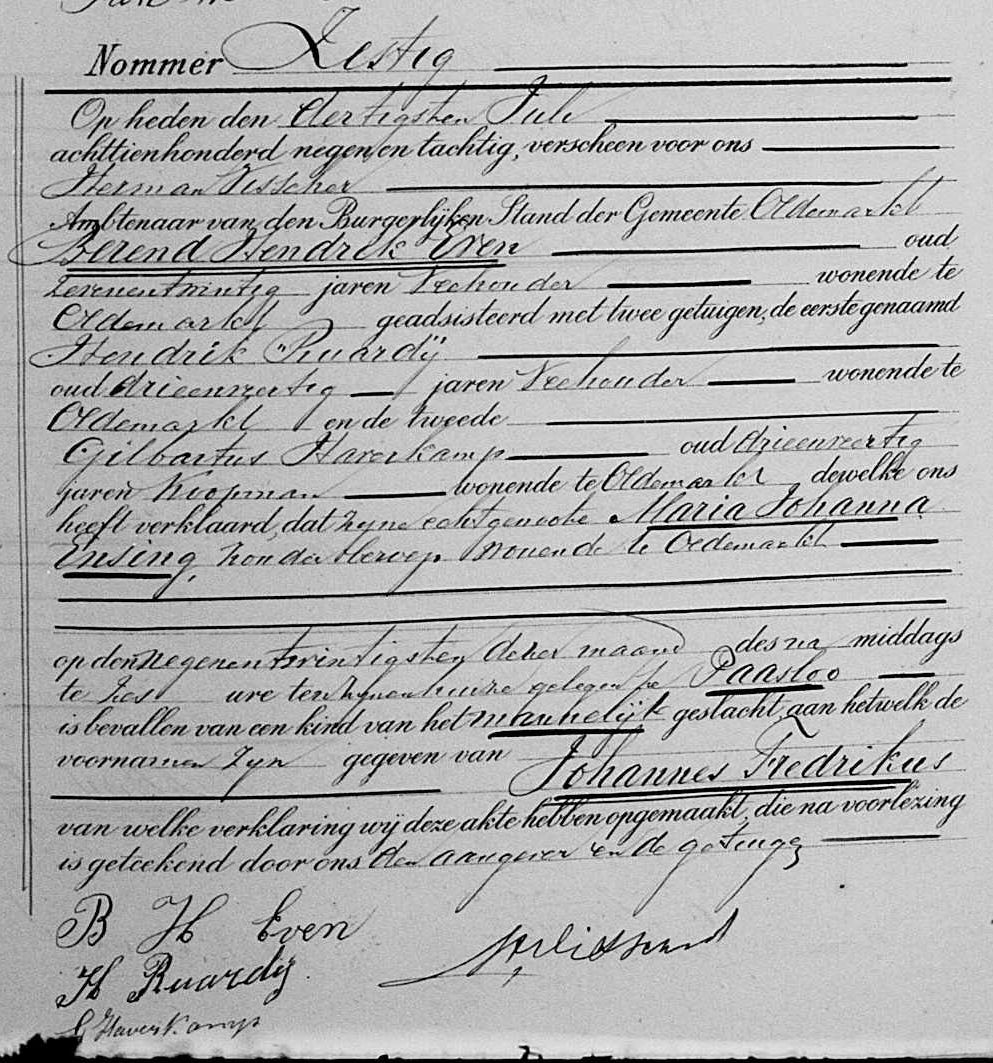 Nommer Zestig
Op heden den dertigsten Juli
achttienhonderd negen en tachtig, verscheen voor ons
Herman Visscher
Ambtenaar van den Burgerlijken Stand der Gemeente Oldemarkt
Berend Hendrik Even oud
zevenentwintig jaren Veehouder wonende te
Oldemarkt geadsisteerd met twee getuigen, de eerste genaamd
Hendrik Ruardÿ
oud drieenveertig jaren Veehouder wonende te
Oldemarkt en de tweede
Gilbartus Haverkamp oud drieenveertig
jaren Koopman wonende te Oldemarkt dewelke ons
heeft verklaard, dat zyne echtgenoote Maria Johanna
Ensing, zonder beroep wonende te Oldemarkt
op den negenentwintigsten dezer maand des na middags
te zes ure ten zynen huize gelegen te Paasloo
is bevallen van een kind van het mannelijk geslacht, aan hetwelk de
voornamen zyn gegeven van Johannes Fredrikus
van welke verklaring wij deze akte hebben opgemaakt, die na voorlezing
is geteekend door ons den aangever en de getuigen
B H Even
H Ruardÿ
HVisscher
G Haverkamp